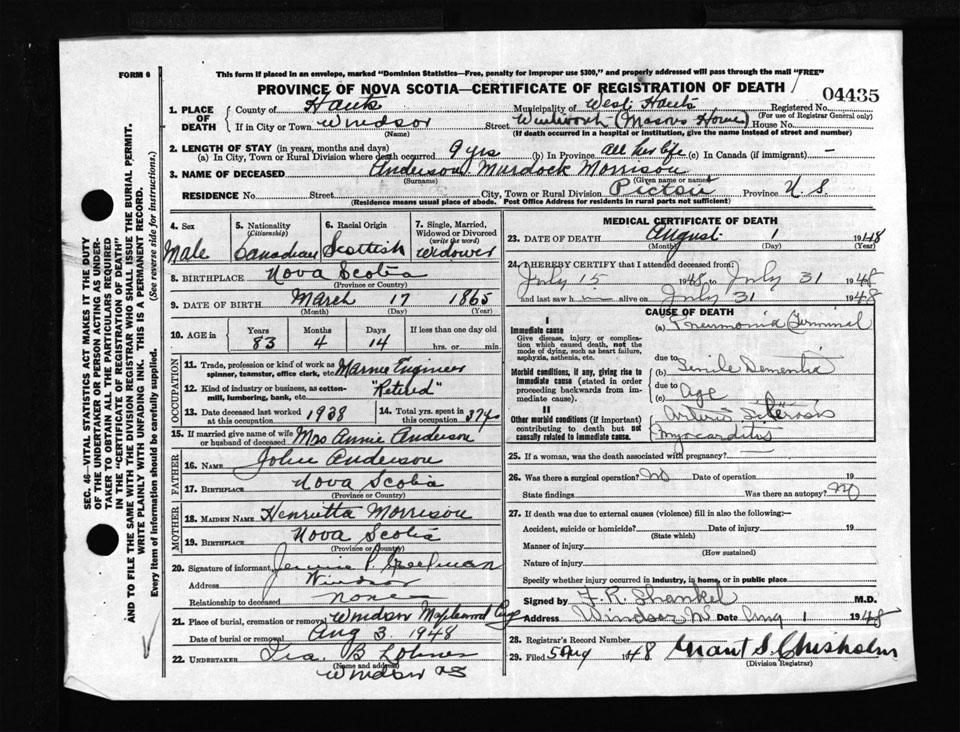 FORM 6
This form if placed in an envelope, marked "Dominion Statistics—Free, penalty for improper use $300," and properly addressed will pass through the mail "FREE"
PROVINCE OF NOVA SCOTIA—CERTIFICATE OF REGISTRATION OF DEATH
04435
1. PLACE OF DEATH County of Hants Municipality of West Hants Registered No. (For use of Registrar General only)
If in City or Town Windsor (Name) Street Wentworth (Masons Home) House No.
(If death occurred in a hospital or institution, give the name instead of street and number)
2. LENGTH OF STAY (in years, months and days)
(a) In City, Town or Rural Division where death occurred 9 yrs (b) In Province All her life (c) In Canada (if immigrant) —
3. NAME OF DECEASED Anderson Murdock Morrison
(Surname) (Given name or names)
RESIDENCE No. Street City, Town or Rural Division Pictou Province N. S.
(Residence means usual place of abode. Post Office Address for residents in rural parts not sufficient)
4. Sex Male
5. Nationality (Citizenship) Canadian
6. Racial Origin Scottish
7. Single, Married, Widowed or Divorced (write the word) Widower
8. BIRTHPLACE Nova Scotia
(Province or Country)
9. DATE OF BIRTH March 17 1865
(Month) (Day) (Year)
10. AGE in Years 83 Months 4 Days 14 If less than one day old hrs. or min.
OCCUPATION
11. Trade, profession or kind of work as spinner, teamster, office clerk, etc. Marine Engineer
12. Kind of industry or business, as cotton-mill, lumbering, bank, etc. "Retired"
13. Date deceased last worked at this occupation 1938
14. Total yrs. spent in this occupation
15. If married give name of wife or husband of deceased Mrs Annie Anderson
FATHER
16. NAME John Anderson
17. BIRTHPLACE Nova Scotia
(Province or Country)
MOTHER
18. MAIDEN NAME Henrietta Morrison
19. BIRTHPLACE Nova Scotia
(Province or Country)
20. Signature of informant Jennie
Address Windsor
Relationship to deceased none
21. Place of burial, cremation or removal Windsor Maplewood
Date of burial or removal Aug 3. 1948
22. UNDERTAKER Ira. B
(Name and address)
Windsor NS
MEDICAL CERTIFICATE OF DEATH
23. DATE OF DEATH August 1 1948
(Month) (Day) (Year)
24. I HEREBY CERTIFY that I attended deceased from:
July 15 1948 to July 31 1948
and last saw h alive on July 31 1948
CAUSE OF DEATH
I
Immediate cause
Give disease, injury or complication which caused death, not the mode of dying, such as heart failure, asphyxia, asthenia, etc.
(a) Pneumonia Terminal
due to
Morbid conditions, if any, giving rise to immediate cause (stated in order proceeding backwards from immediate cause).
(b) Senile Dementia
due to
(c) Age
II
Other morbid conditions (if important) contributing to death but not causally related to immediate cause.
Arterio Sclerosis
Myocarditis
25. If a woman, was the death associated with pregnancy?
26. Was there a surgical operation? No Date of operation 19
State findings Was there an autopsy? No
27. If death was due to external causes (violence) fill in also the following:—
Accident, suicide or homicide? Date of injury 19
(State which)
Manner of injury
(How sustained)
Nature of injury
Specify whether injury occurred in industry, in home, or in public place
Signed by F. R. Shankel M.D.
Address Windsor NS Date Aug 1 1948
28. Registrar's Record Number
29. Filed 5 Aug 1948 Grant S. Chisholm
(Division Registrar)
SEC. 46—VITAL STATISTICS ACT MAKES IT THE DUTY
OF THE UNDERTAKER OR PERSON ACTING AS UNDER-
TAKER TO OBTAIN ALL THE PARTICULARS REQUIRED
IN THE "CERTIFICATE OF REGISTRATION OF DEATH"
AND TO FILE THE SAME WITH THE DIVISION REGISTRAR WHO SHALL ISSUE THE BURIAL PERMIT.
WRITE PLAINLY WITH UNFADING INK. THIS IS A PERMANENT RECORD.
Every item of information should be carefully supplied. (See reverse side for instructions.)